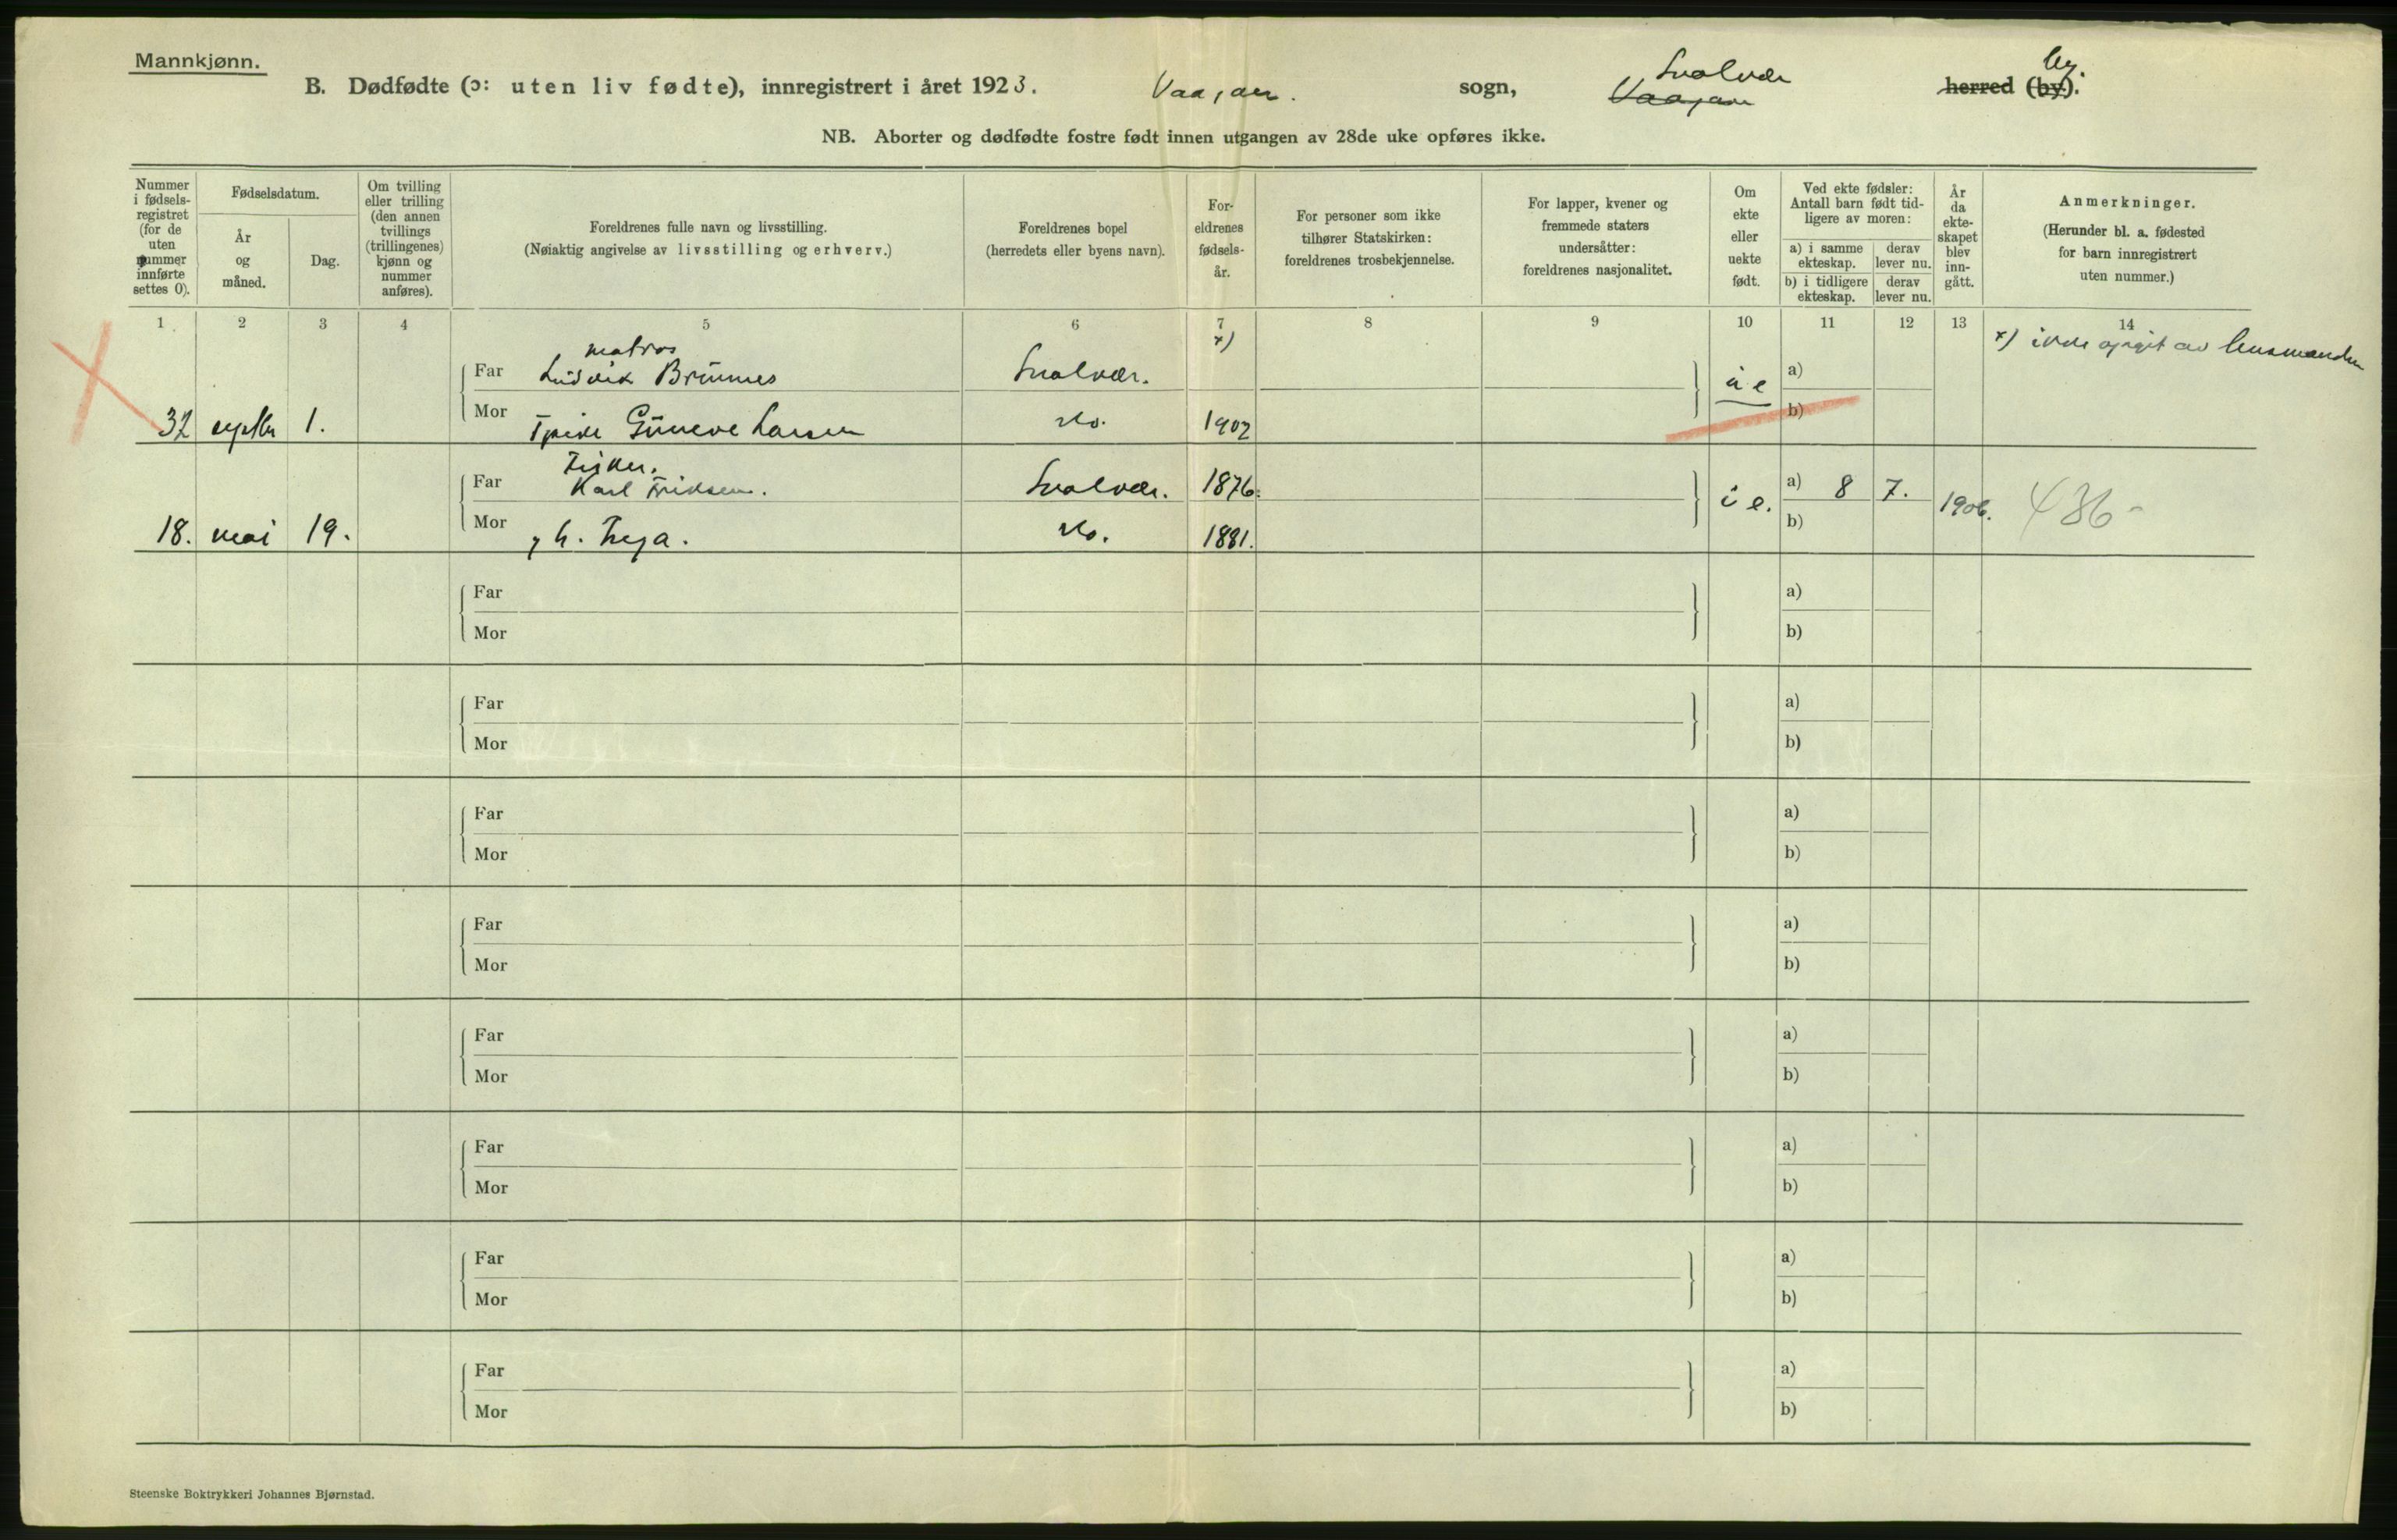 Mannkjønn.
B. Dødfødte (ɔ: uten liv fødte), innregistrert i året 1923. Vaagan. sogn, Svolvær Vaagan herred (by). by.
NB. Aborter og dødfødte fostre født innen utgangen av 28de uke opføres ikke.
Nummer i fødsels-registret (for de uten nummer innførte settes 0).
Fødselsdatum.
År og måned.
Dag.
Om tvilling eller trilling (den annen tvillings (trillingenes) kjønn og nummer anføres).
Foreldrenes fulle navn og livsstilling.
(Nøiaktig angivelse av livsstilling og erhverv.)
Foreldrenes bopel
(herredets eller byens navn).
For-eldrenes fødsels-år.
For personer som ikke tilhører Statskirken: foreldrenes trosbekjennelse.
For lapper, kvener og fremmede staters undersåtter: foreldrenes nasjonalitet.
Om ekte eller uekte født.
Ved ekte fødsler: Antall barn født tid-ligere av moren:
a) i samme ekteskap. derav lever nu.
b) i tidligere ekteskap. derav lever nu.
År da ekte-skapet blev inn-gått.
Anmerkninger.
(Herunder bl. a. fødested for barn innregistrert uten nummer.)
1 2 3 4 5 6 7 8 9 10 11 12 13 14
x) x) ikke opgit av lensmanden
matros
Far Ludvik Svolvær. a)
u e
32 septbr 1. Mor Gunneve Larsen do. 1902 b)
Fisker.
Far Karl Eriksen. Svolvær. 1876. i e. a) 8 7. 1906. 436-
18. mai 19. Mor do. 1881. b)
Far a)
Mor b)
Far a)
Mor b)
Far a)
Mor b)
Far a)
Mor b)
Far a)
Mor b)
Far a)
Mor b)
Far a)
Mor b)
Far a)
Mor b)
Steenske Boktrykkeri Johannes Bjørnstad.